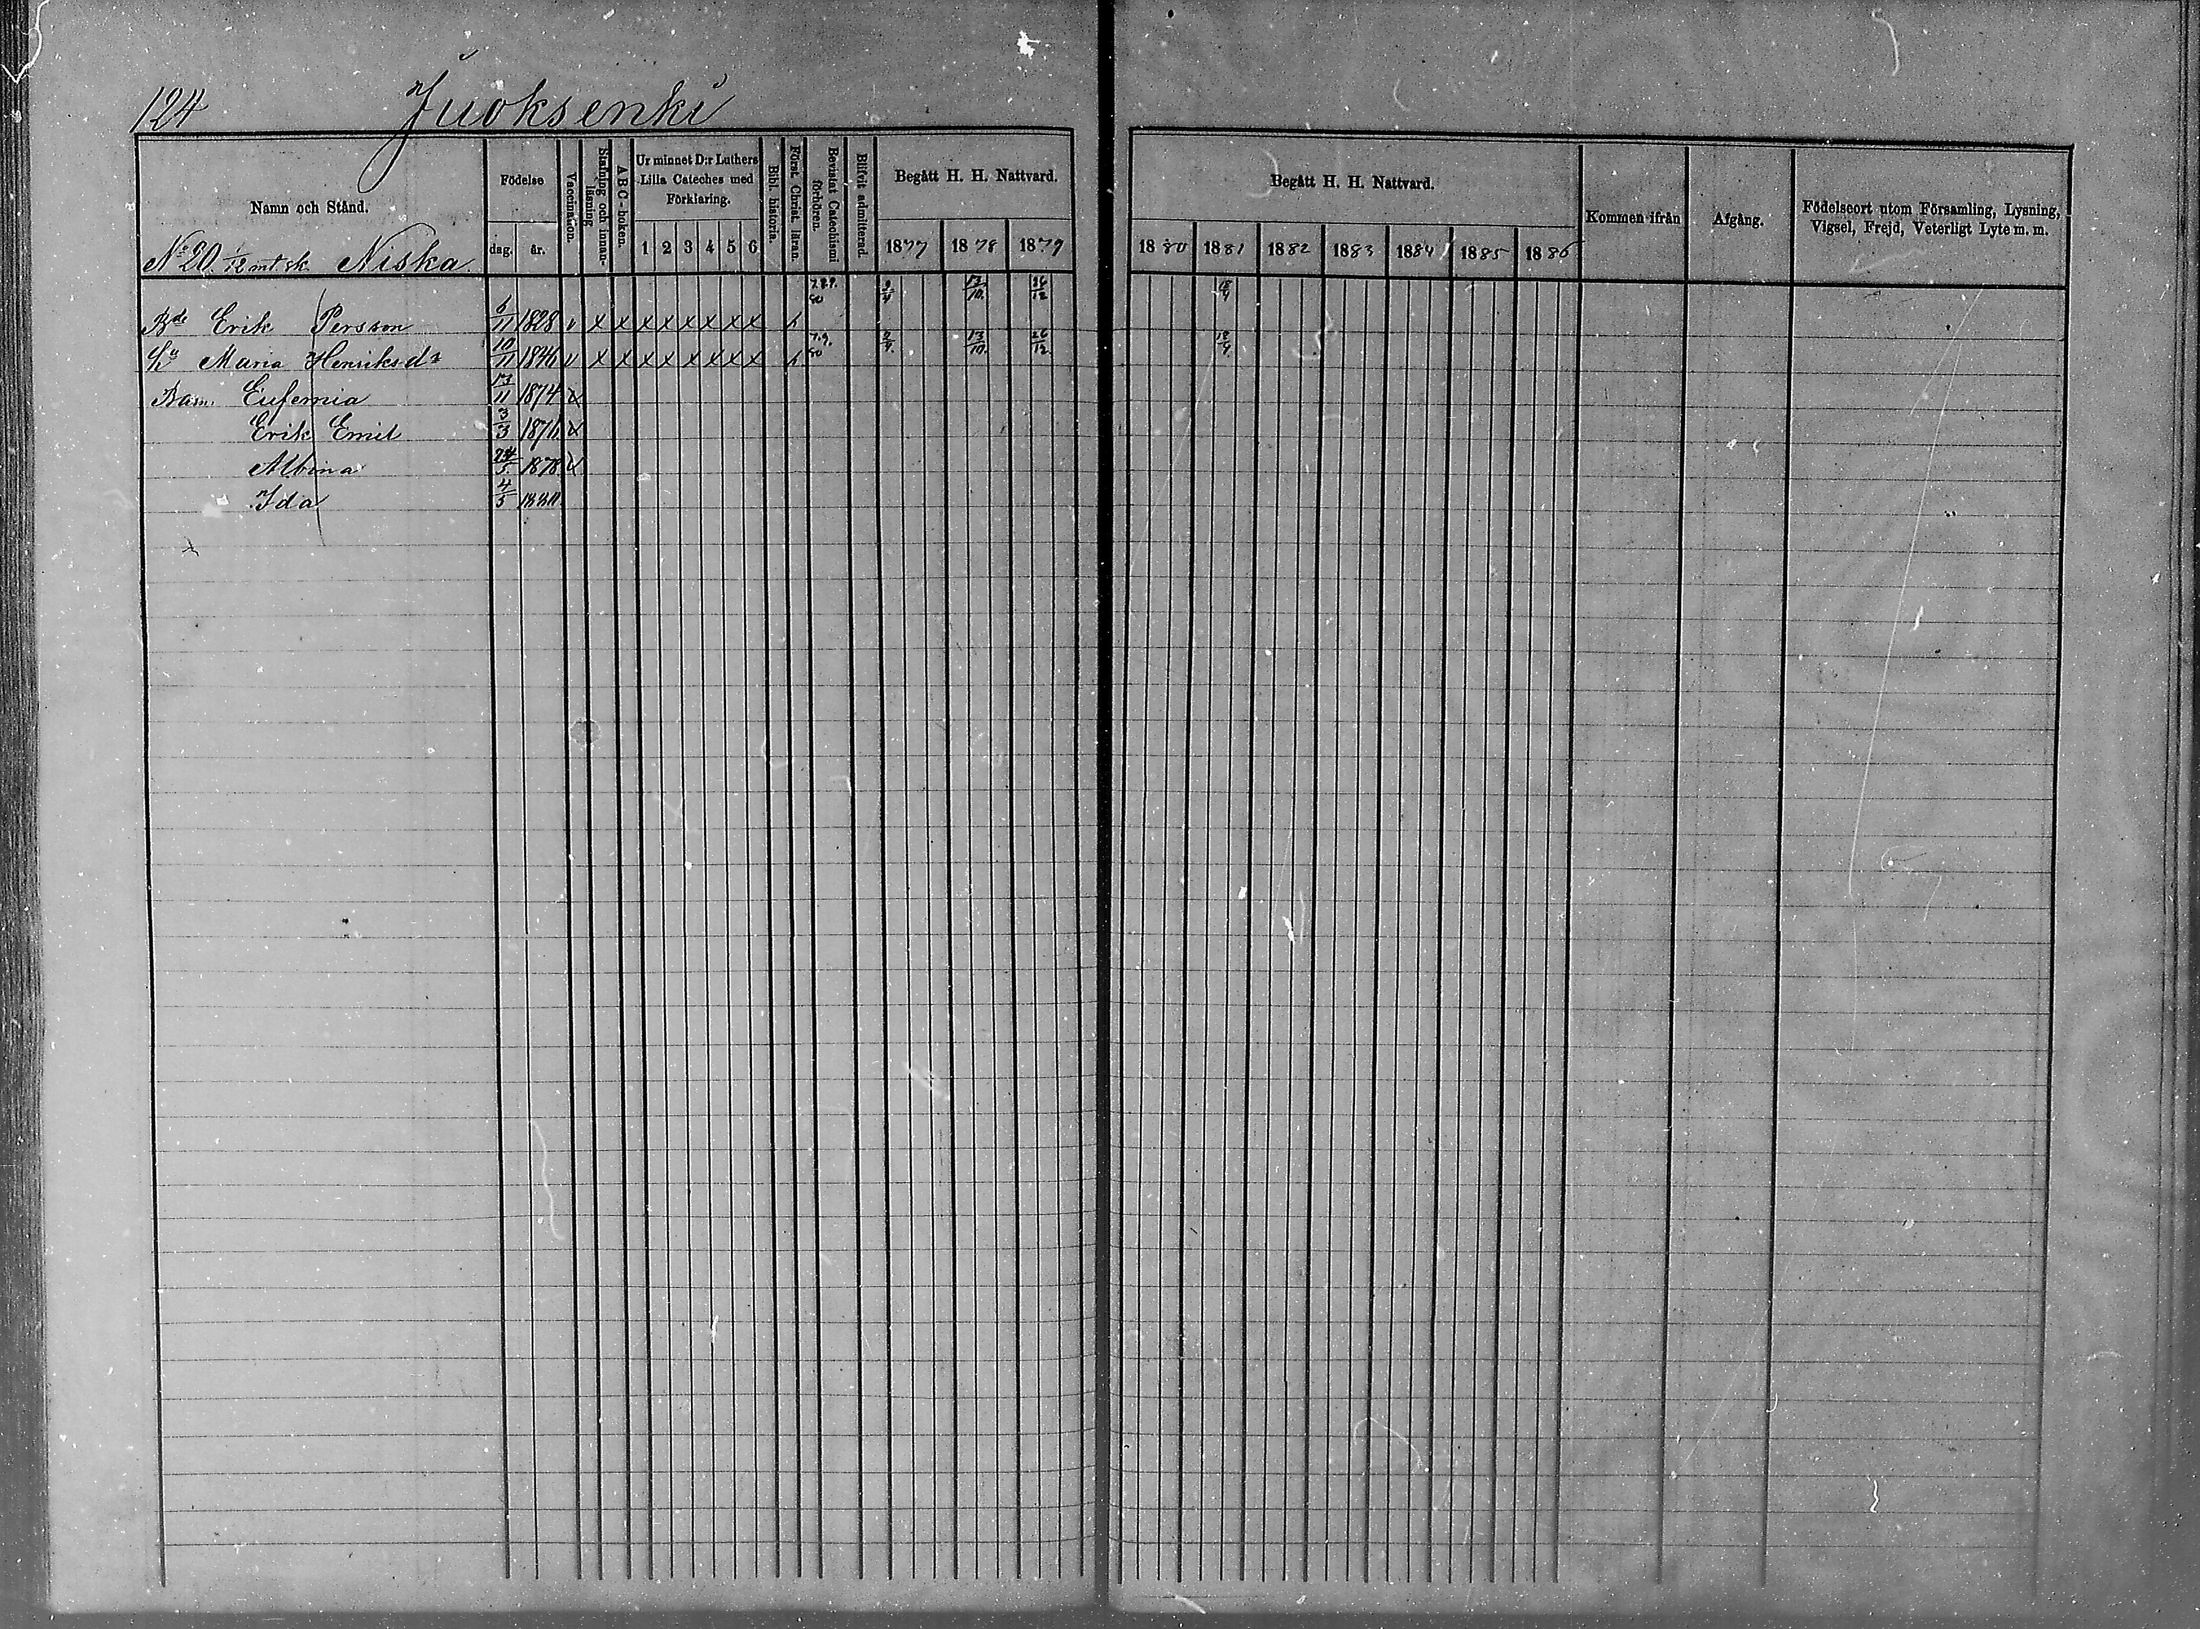 124 Juoksenki
Namn och Stånd.
Födelse
dag. år.
Vaccination.
Stafning och innanläsning
A B C-boken.
Ur minnet D:r Luthers Lilla Cateches med Förklaring.
1 2 3 4 5 6
Bibl. historia.
Först. Christ. läran.
Bevistat Catechismi förhören.
Blifvit admitterad.
Begått H. H. Nattvard.
1877 1878 1879
Begått H. H. Nattvard.
1880 1881 1882 1883 1884 1885 1886
Kommen ifrån
Afgång.
Födelseort utom Församling, Lysning,
Vigsel, Frejd, Veterligt Lyte m. m.
No 20. 1/12 mt sk. Niska
Bde Erik Persson 6/11 1828 v x x x x x x x x
Hu Maria Henriksdr 10/11 1846 v x x x x x x x x 7.9. 80 2/4. 13/10. 26/12 18/4
Barn. Eufemia 17/11 1874 x
Erik Emil 3/3 x
Albina 24/5 1878 x
Ida 4/5